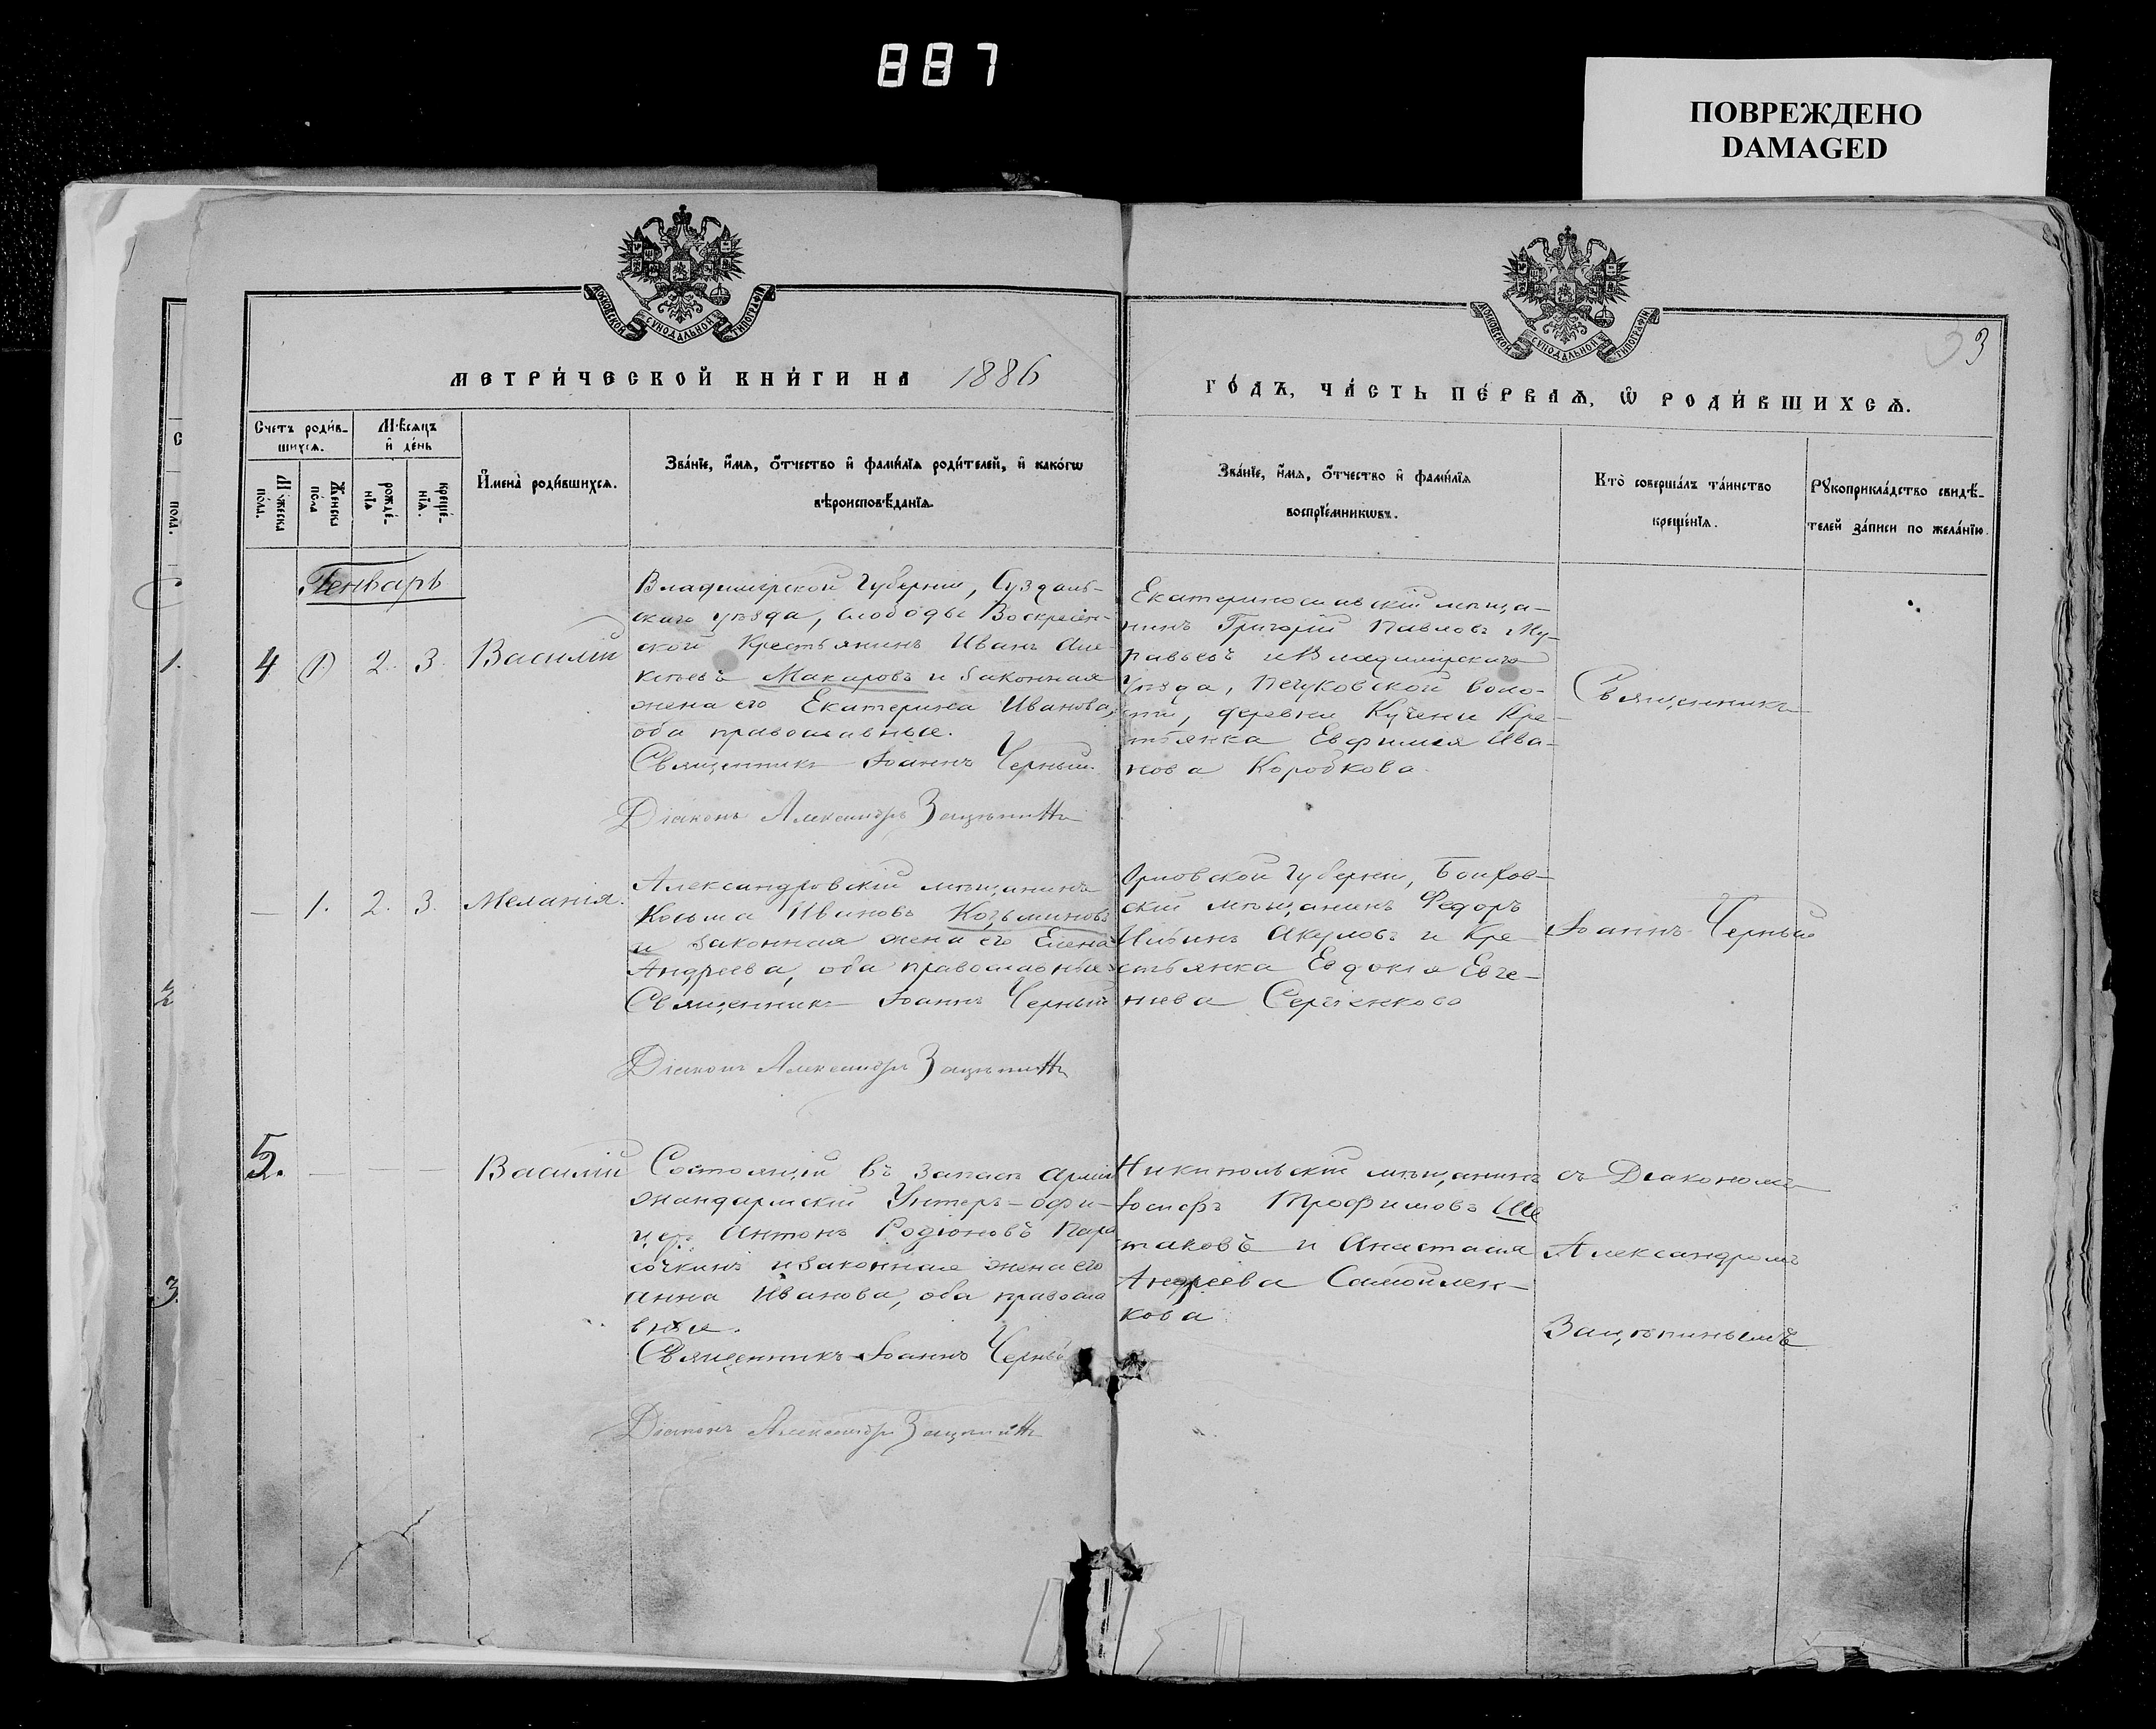 887
ПОВРЕЖДЕНО
DAMAGED
МОСКОВСКОЙ СѴНОДАЛЬНОЙ ТИПОГРАФІИ
МОСКОВСКОЙ СѴНОДАЛЬНОЙ ТИПОГРАФІИ
3
МЕТРИ́ЧЕСКОЙ КНИ́ГИ НА 1886
ГО́ДЪ, ЧА́СТЬ ПЕ́РВАѦ, Ѿ РОДИ́ВШИХСѦ.
Счетъ роди́в-
шихсѧ.
Мѣсѧцъ
и҆ де́нь
Мꙋжеска
по́ла.
Женска
по́ла
рожде́-
нїѧ
креще́-
нїѧ.
И҆мена̀ роди́вшихсѧ.
Зва́нїе, и҆́мѧ, ѻ҆́тчество и҆ фами́лїѧ роди́телей, и҆ како́гѡ
вѣроисповѣ́данїѧ.
Зва́нїе, и҆́мѧ, ѻ҆́тчество и҆ фами́лїѧ
воспрїе́мникѡвъ.
Кто̀ соверша́лъ та́инство
креще́нїѧ.
Рꙋкоприкла́дство свидѣ́-
телей за́писи по жела́нїю.
Генварь
4 (1) 2. 3. Василій
Владимірской Губерніи, Суздаль-
скаго уѣзда, слободы Воскресен-
ской Крестьянинъ Иванъ Але-
ксѣевъ Макаровъ и законная
жена его Екатерина Иванова,
оба православные.
Священникъ Іоаннъ Черный.
Діаконъ Александръ Зацѣпинъ
Екатеринославскій мѣща-
нинъ Григорій Павловъ Му-
равьевъ и Владимірскаго
Уѣзда, волос-
сти, деревни Кре-
стьянка Евфимія Ива-
нова Коробкова.
Священникъ
— 1. 2. 3. Меланія.
Александровскій мѣщанинъ
Косьма Ивановъ Козьминовъ
и законная жена его Елена
Андреева, оба православные
Священникъ Іоаннъ Черный
Діаконъ Александръ Зацѣпинъ
Орловской Губерніи, Болхов-
скій мѣщанинъ Федоръ
Ильинъ Акуловъ и Кре-
стьянка Евдокія Евге-
ніева Сергіенкова
Іоаннъ Черный
5. — — — Василій
Состоящій въ запасѣ арміи
жандармскій Унтеръ-офи-
церъ Антонъ Родіоновъ Пара
сочкинъ и законная жена его
Анна Иванова, оба правосла
вные.
Священникъ Іоаннъ Черный
Діаконъ Александръ Зацѣпинъ
Никипольскій мѣщанинъ
Іосифъ Трофимовъ Ше
таковъ и Анастасія
Андреева Самойлен-
кова
съ Діакономъ
Александромъ
Зацѣпинымъ